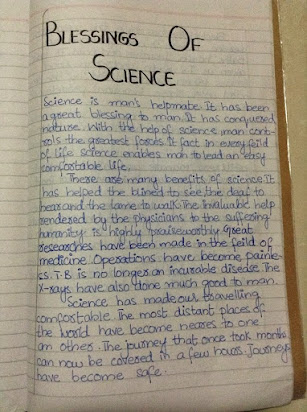 BLESSINGS OF
SCIENCE
Science is man's helpmate. It has been
a great blessing to man. It has conquered
nature. With the help of science man cont-
rols the greatest forces. If fact in every feild
of life science enables man to lead an easy
comfortable life.
There are many benefits of science. It
has helped the blined to see, the deaf to
hear and the lame to walk. The invaluable help
rendered by the physicians to the suffering
humanity is highly praiseworthy. Great
researches have been made in the feild of
medicine. Operations have become painle-
ss. T.B is no longer an incurable disease. The
X-rays have also done much good to man.
Science has made our travelling
comfortable. The most distant places of
the world have become nearer to one
an other. The journey that once took months
can now be covered in a few hours. Journeys
have become safe.